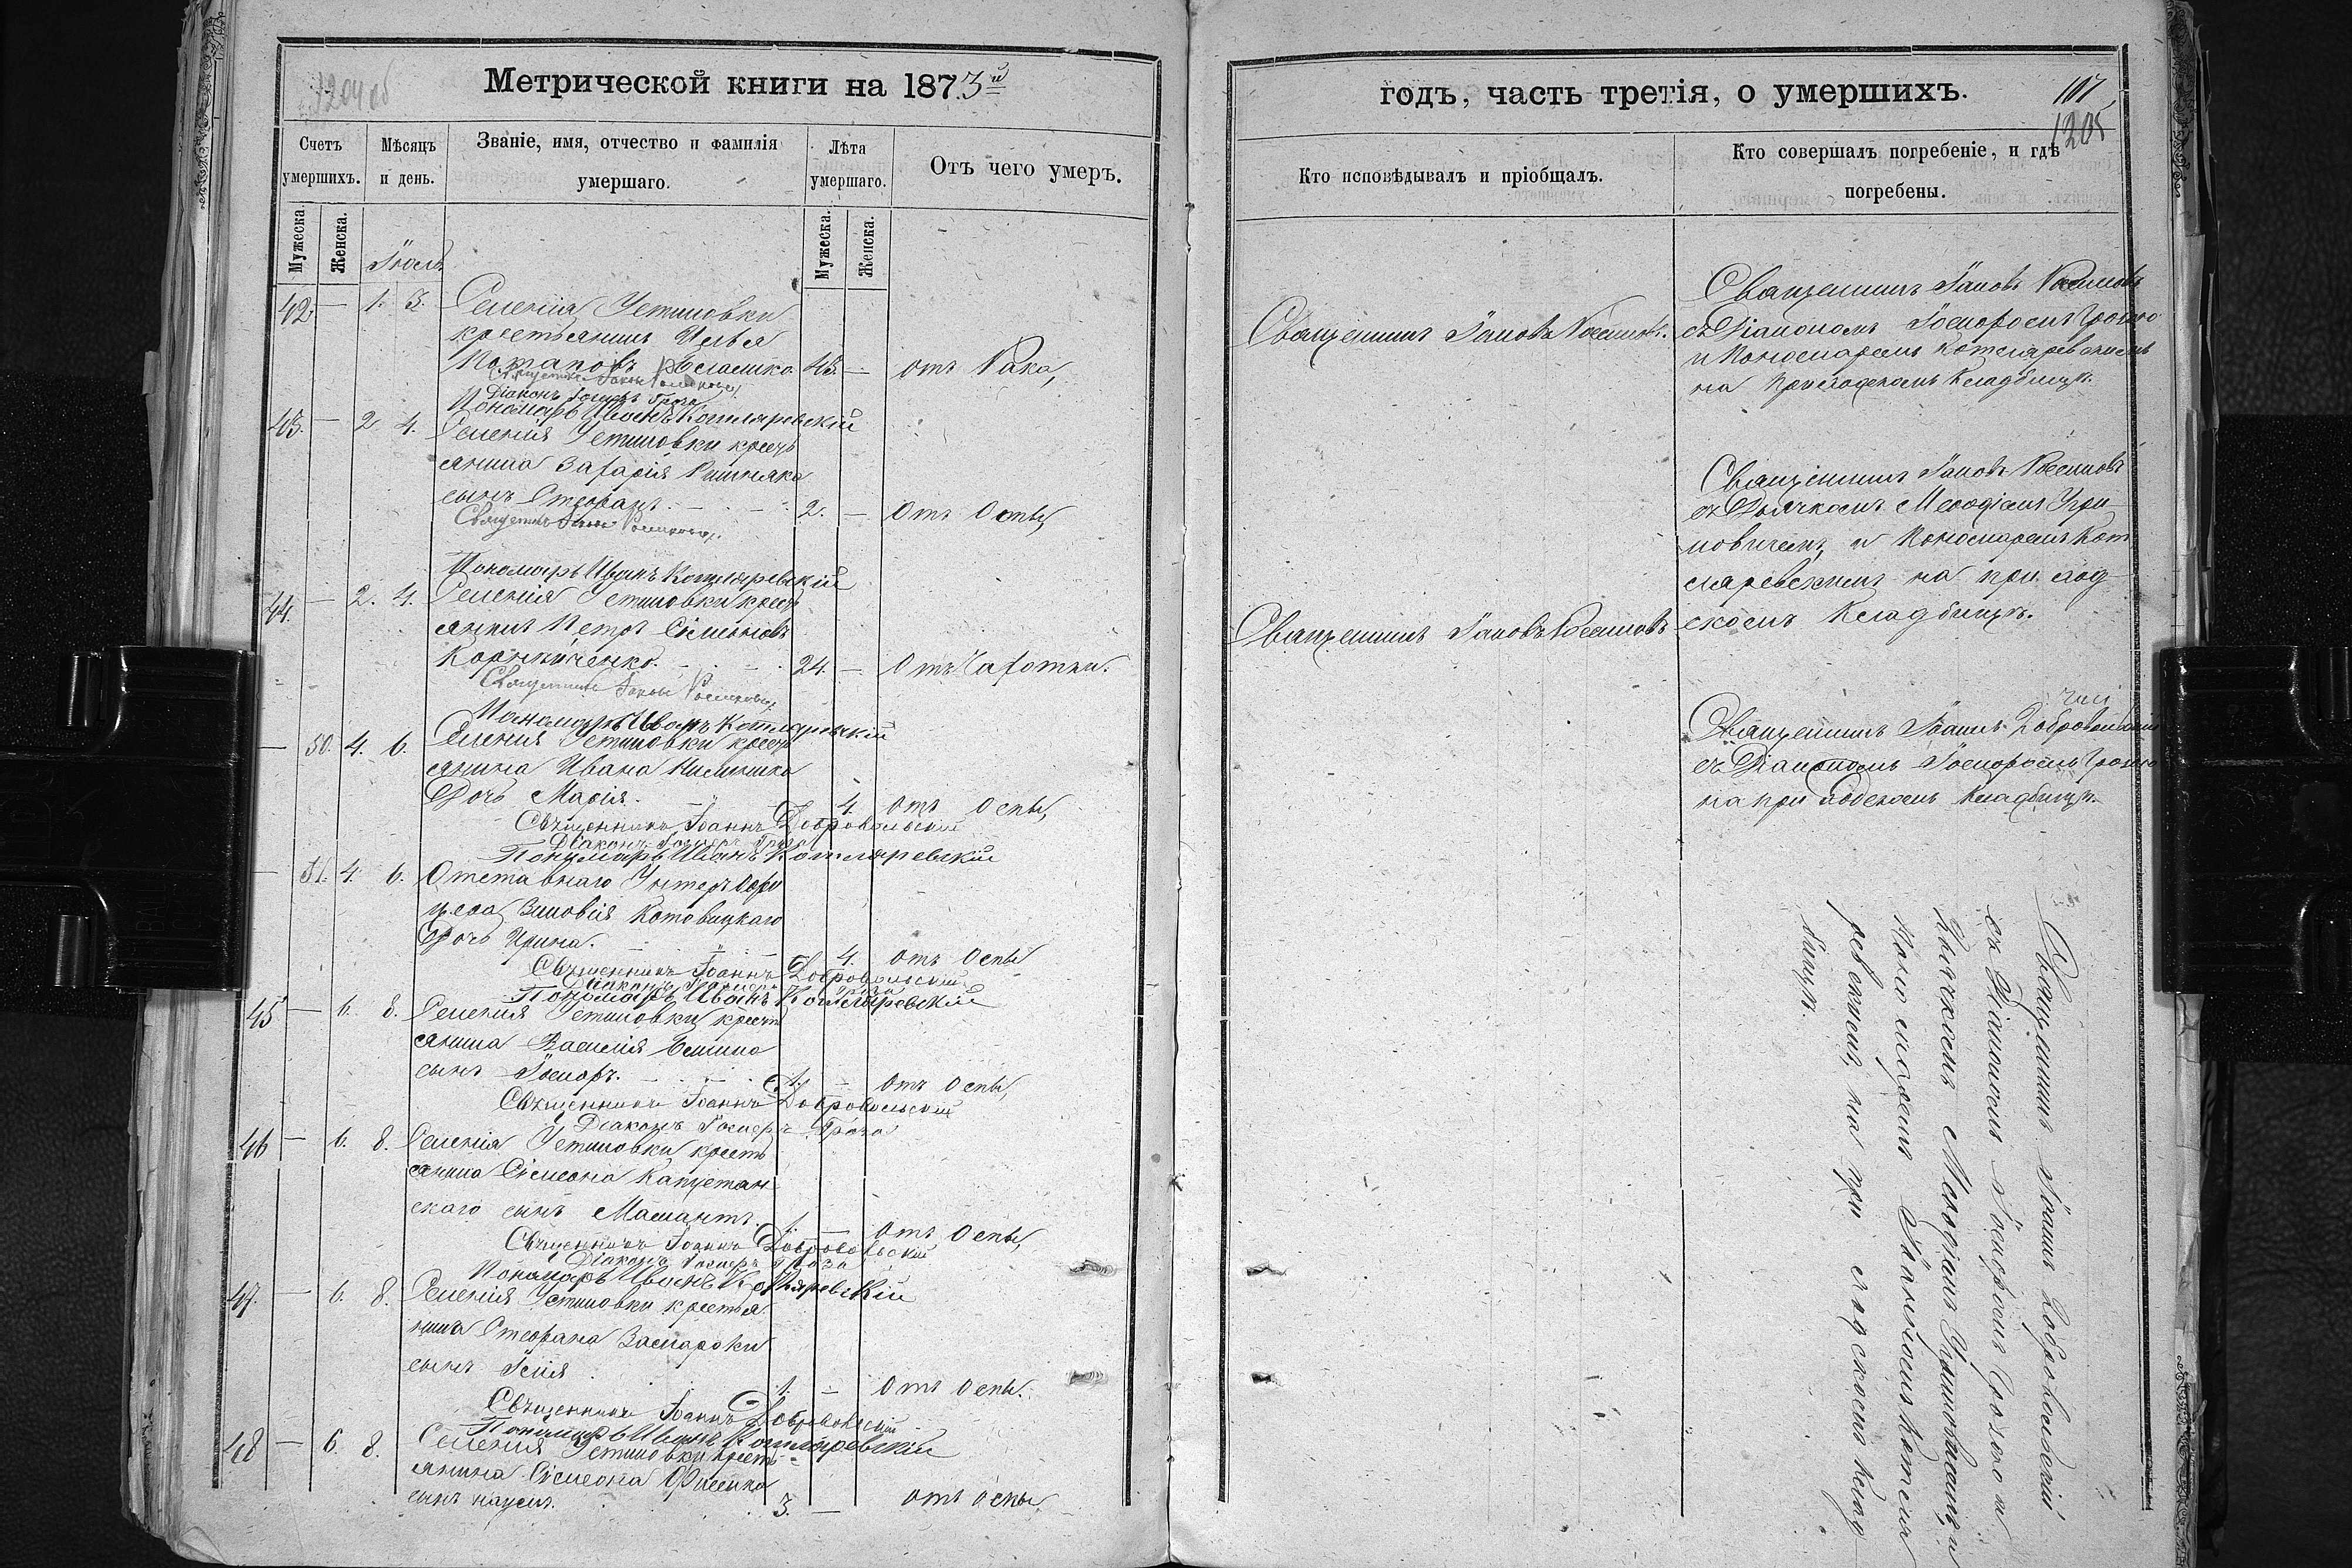 1204 об
Метрической книги на 1873й
Счетъ умершихъ.
Мѣсяцъ и день.
Званіе, имя, отчество и фамилія умершаго.
Лѣта умершаго.
Отъ чего умеръ.
Мужеска.
Женска.
Мужеска.
Женска.
Іюль
42 — 1. 3. Селенія Устиновки
крестьянинъ Илья
Потаповъ 48. — отъ Рака,
Діаконъ Іосифъ Гроза
Пономарь Иванъ Котляревскій
43. — 2 4. Селенія Устиновки кресть
янина Захарія
сынъ Стефанъ 2. — Отъ Оспы,
Священникъ Іаковъ
Пономарь Иванъ Котляревскій
44. — 2. 4. Селенія Устиновки кресть
янинъ Петръ Сімеоновъ
Корнійченко. 24 — Отъ Чахотки.
Священникъ Іаковъ
Пономарь Иванъ Котляревскій
— 50. 4. 6. Селенія Устиновки кресть
янина Ивана
Дочь Марія. 4. отъ Оспы,
Священникъ Іоаннъ Добровольскій
Діаконъ Іосифъ Гроза
Пономарь Иванъ Котляревскій
— 51. 4. 6. Отставнаго Унтеръ Офи
цера Зиновія Котовицкаго
Дочь Ирина. 4. отъ Оспы
Священникъ Іоаннъ Добровольскій
Діаконъ Іосифъ Гроза
Пономарь Иванъ Котляревскій
45 — 6. 8. Селенія Устиновки крестъ
янина Василія
сынъ Іосифъ. 1. — Отъ Оспы,
Священникъ Іоаннъ Добровольскій
Діаконъ Іосифъ Гроза
46 — 6. 8. Селенія Устиновки кресть
янина Сімеона Капустян
скаго сынъ 1. — Отъ Оспы,
Священникъ Іоаннъ Добровольскій
Діаконъ Іосифъ Гроза
Пономарь Иванъ Котляревскій
47. — 6. 8. Селенія Устиновки крестья
нина Стефана
сынъ Ілія 1. — Отъ Оспы.
Священникъ Іоаннъ Добровольскій
Пономарь Иванъ Котляревскій
48 — 6. 8. Селенія Устиновки кресть
янина Сімеона
сынъ Наумъ. 3. — отъ оспы,
годъ, часть третія, о умершихъ.
107
1205
Кто исповѣдывалъ и пріобщалъ.
Кто совершалъ погребеніе, и гдѣ погребены.
Священникъ Іаковъ
Священникъ Іаковъ
съ Діакономъ Іосифомъ Грозою
и Пономаремъ Котляревскимъ
на приходскомъ кладбищѣ.
Священникъ Іаковъ
съ Дьячкомъ Меѳодіемъ
и Пономаремъ Кот
ляревскимъ на приход
скомъ кладбищѣ.
Священникъ Іаковъ
Священникъ Іоаннъ Добровольскій
съ Діакономъ Іосифомъ Грозою
на приходскомъ кладбищѣ.
Священникъ Іоаннъ Добровольскій
съ Діакономъ Іосифомъ Грозою и
Дьячкомъ Меѳодіемъ и
Пономаремъ Іоанномъ Котля
ревскимъ, на приходскомъ клад
бищѣ.